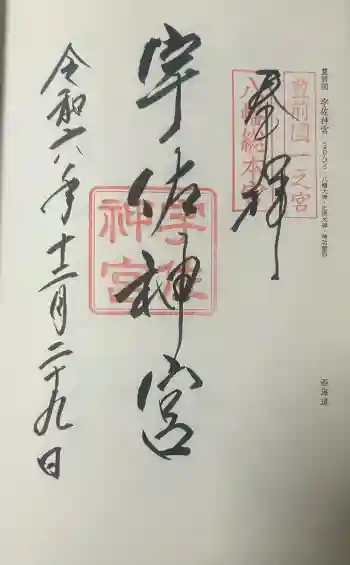 豊前国 宇佐神宮
西海道
豊前國一之宮
八幡総本宮
奉拝
宇佐神宮
宇佐
神宮
令和六年十二月二十九日